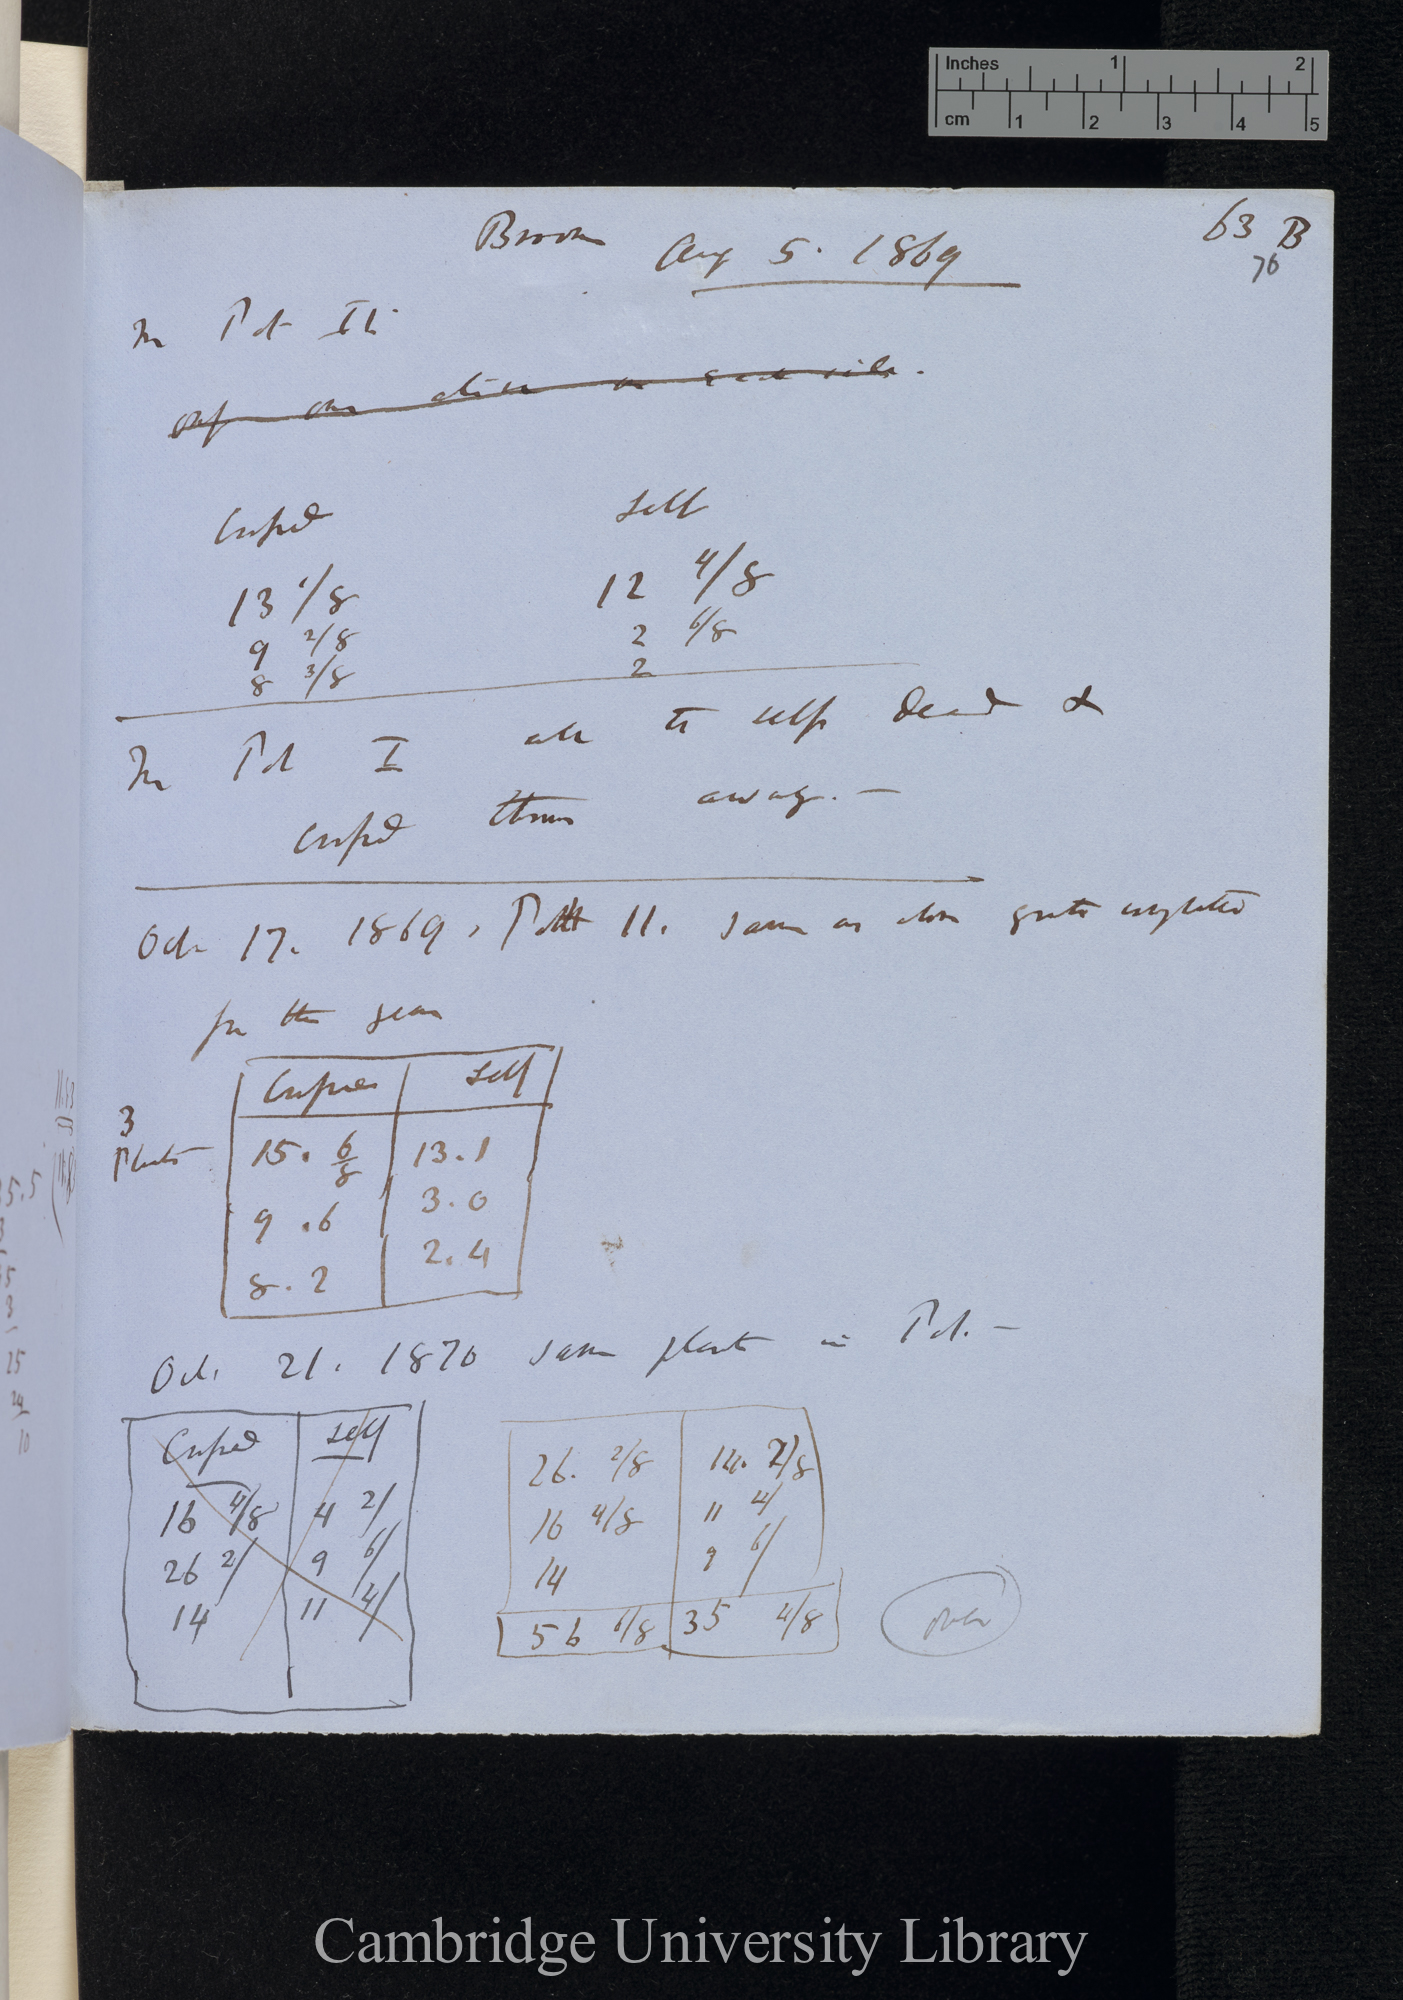 Inches 1 2
cm 1 2 3 4 5
Broom Aug 5. 1869
63 B
70
In Pot II.
only one alive on each side.
Crossed Self
13 1/8 12 4/8
9 2/8 2 6/8
8 3/8 2
In Pot I all the selfs dead &
Crossed thrown away. —
Oct 17. 1869, Pot II. same as above
for the year
Crossed Self
3
Plants
15. 6/8 13.1
9.6 3.0
8.2 2.4
Oct. 21. 1870 same plants in Pot. —
Crossed Self
16 4/8 4 2/
26 2/ 9 6/
14 11 4/
26. 2/8 14. 2/8
16 4/8 11 4/
14 9 6/
56 6/8 35 4/8
over
Cambridge University Library